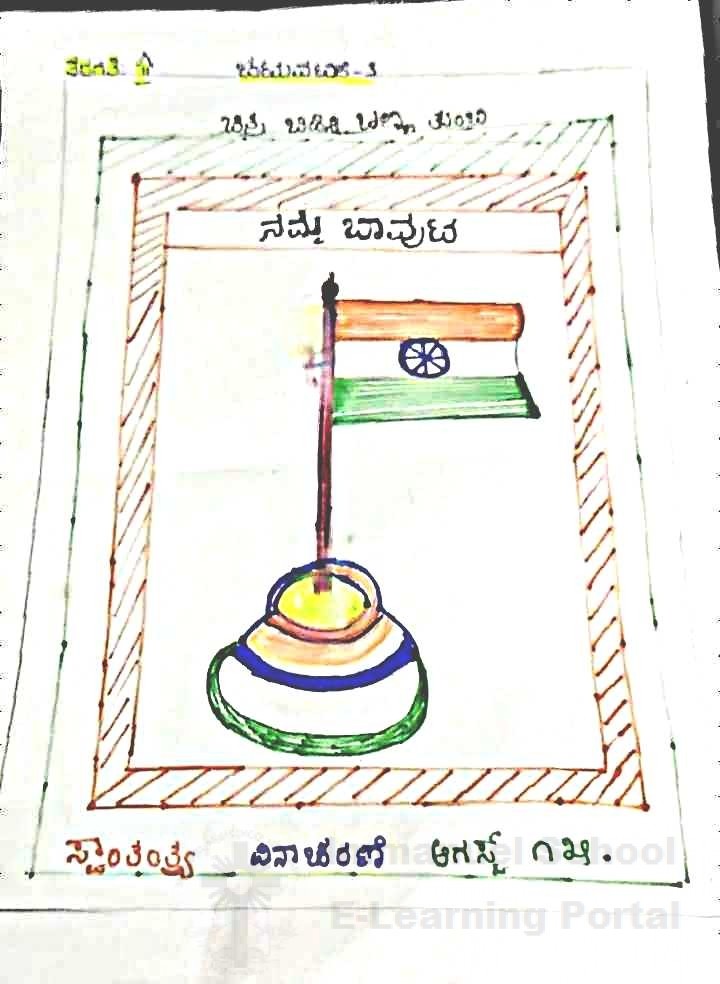 ತರಗತಿ II ಚಟುವಟಿಕೆ-3
ಚಿತ್ರ ಬಿಡಿಸಿ ಬಣ್ಣ ತುಂಬಿರಿ
ನಮ್ಮ ಬಾವುಟ
ಸ್ವಾಂತಂತ್ರ್ಯ ದಿನಾಚರಣೆ ಆಗಸ್ಟ್ ೧೫.
School
E-Learning Portal